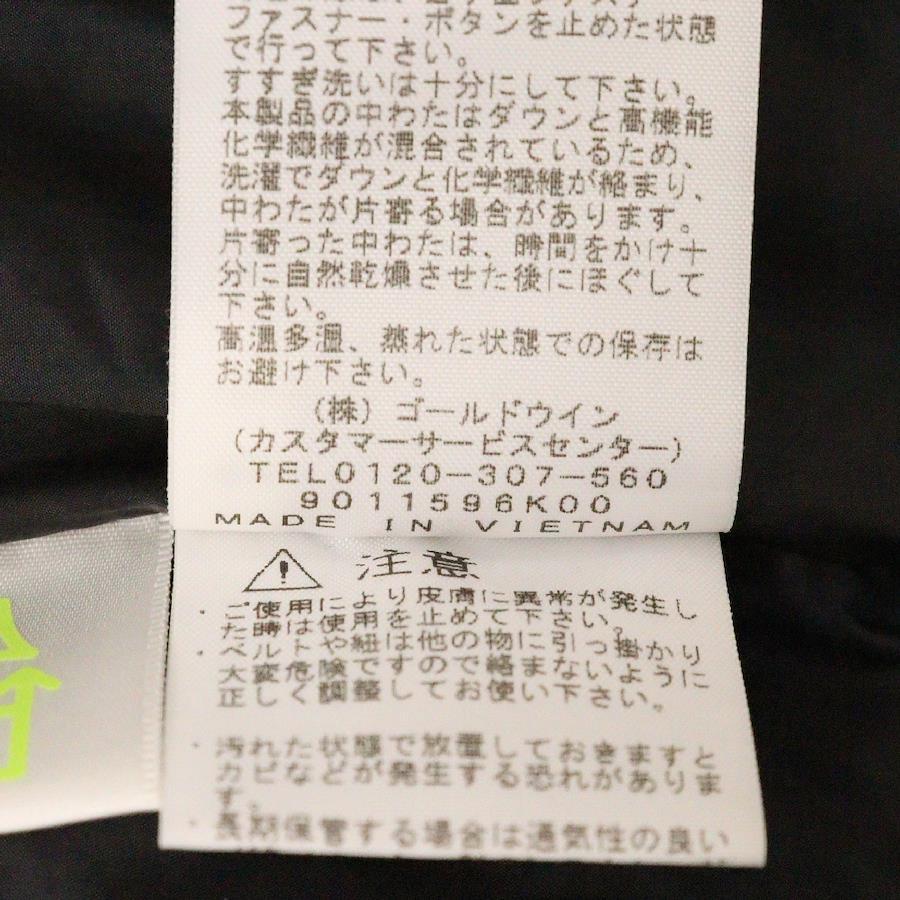 ファスナー・ボタンを止めた状態
で行って下さい。
すすぎ洗いは十分にして下さい。
本製品の中わたはダウンと高機能
化学繊維が混合されているため、
洗濯でダウンと化学繊維が絡まり、
中わたが片寄る場合があります。
片寄った中わたは、時間をかけ十
分に自然乾燥させた後にほぐして
下さい。
高温多湿、蒸れた状態での保存は
お避け下さい。
(株)ゴールドウイン
(カスタマーサービスセンター)
TEL0120-307-560
9011596K00
MADE IN VIETNAM
注意
・ご使用により皮膚に異常が発生し
た時は使用を止めて下さい。
・ベルトや紐は他の物に引っ掛かり
大変危険ですので絡まないように
正しく調整してお使い下さい。
・汚れた状態で放置しておきますと
カビなどが発生する恐れがありま
す。
・長期保管する場合は通気性の良い